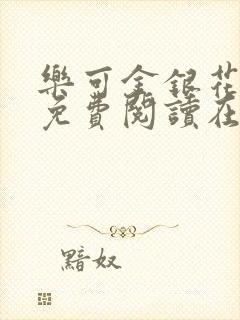 樂可金銀花
免費閱讀在
黯奴